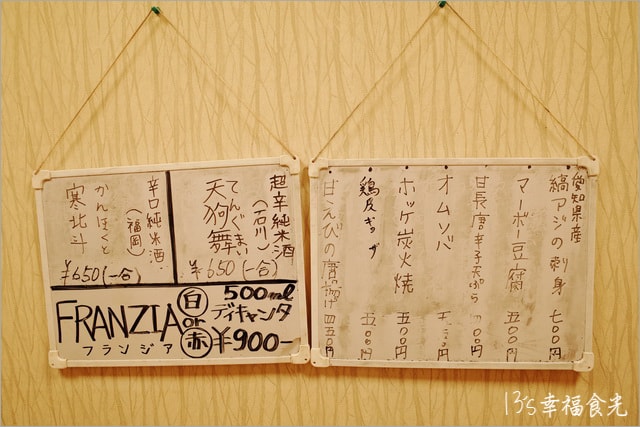 超辛純米酒
(石川)
てんぐまい
天狗舞
¥650(一合)
辛口純米酒
(福岡)
かんほくと
寒北斗
¥650(一合)
FRANZIA
フランジア
白
or
赤
500ml
ディキャンタ
¥900-
愛知県産
縞アジの刺身 七〇〇円
マーボー豆腐 五〇〇円
甘長唐辛子天ぷら 〇〇円
オムソバ 〇〇円
ホッケ炭火焼 五〇〇円
鶏皮ギョーザ 五〇〇円
甘えびの唐揚げ 四五〇円
13's幸福食光